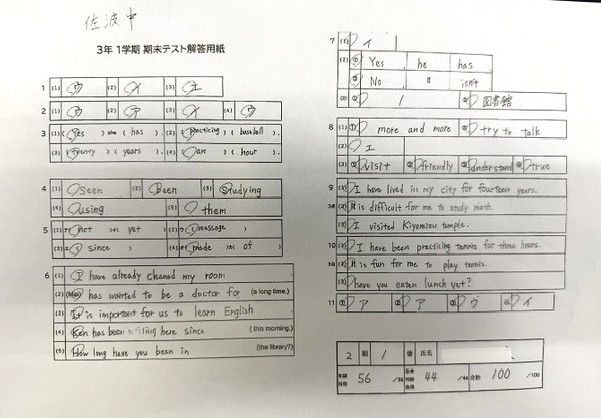 佐波中
3年 1学期 期末テスト解答用紙
1 (1) ウ (2) イ (3) エ
2 (1) ウ (2) ア (3) イ (4) ウ
3 (1) ( Yes ) ( has ). (2) ( practicing ) ( baseball ).
(3) ( twenty ) ( years ). (4) ( an ) ( hour ).
4 (1) Seen (2) Been (3) Studying
(4) using (5) them
5 (1) not yet (2) message
(3) since (4) made of
6 (1) I have already cleaned my room
(2) has wanted to be a doctor for (a long time.)
(3) It is important for us to learn English
(4) Ken has been here since (this morning.)
(5) How long have you been in (the library?)
7 (1) イ
(2) ① Yes he has
② No 〃 isn't
(3) ① ② 図書館
8 (1) ① more and more ② try to talk
(2) エ
(3) ① visit ② friendly ③ understand ④ true
9 (1) I have lived in my city for fourteen years.
(2) It is difficult for me to study math.
(3) I visited Kiyomizu temple.
10 (1) I have been practicing tennis for three hours.
(2) It is fun for me to play tennis.
(3) Have you eaten lunch yet?
11 ① ア ② ア ③ ウ ④ イ
2 組 1 番 氏名
56 44 /44 合計 100 /100